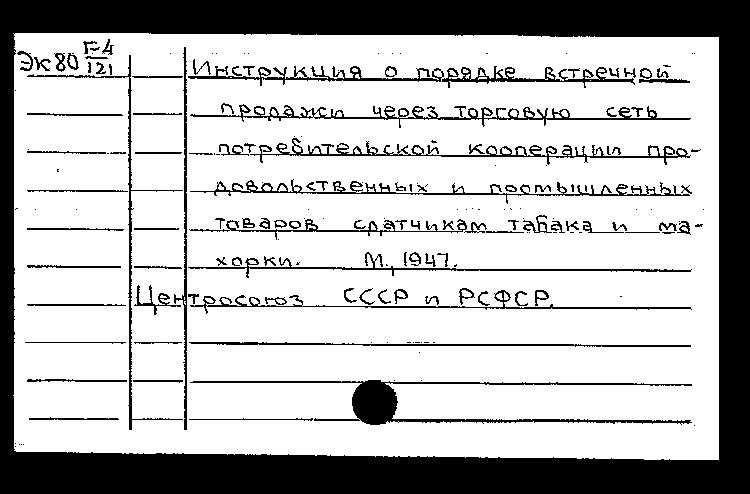 Эк80 Г-4/121
Инструкция о порядке встречной
продажи через торговую сеть
потребительской кооперации про-
довольственных и промышленных
товаров сдатчикам табака и ма-
хорки. М., 1947.
Центросоюз СССР и РСФСР.